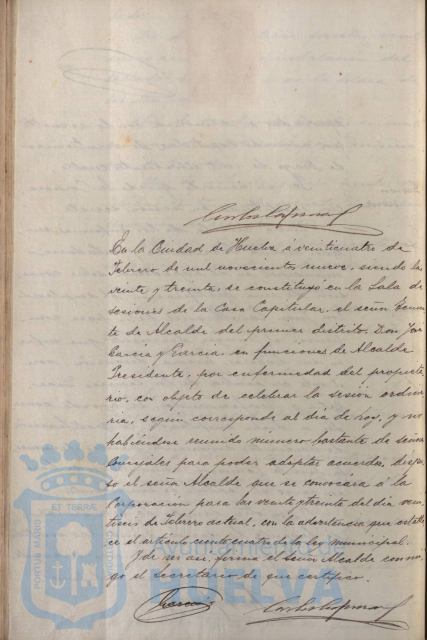 En la Ciudad de Huelva á veinticuatro de
Febrero de mil novecientos nueve, siendo las
veinte y treinta, se constituyó en la Sala de
sesiones de la Casa Capitular, el señor Tenien-
te de Alcalde del primer distrito, Don José
García y García, en funciones de Alcalde
Presidente, por enfermedad del propieta-
rio, con objeto de celebrar la sesión ordina-
ria, según corresponde al día de hoy, y no
habiéndose reunido número bastante de señores
Concejales para poder adoptar acuerdos, dispu-
so el señor Alcalde que se convocara á la
Corporación para las veinte y treinta del día vein-
tiseis de Febrero actual, con la advertencia que estable-
ce el artículo ciento cuatro de la ley municipal.
Y de ser así, firma el señor Alcalde conmi-
go el Secretario de que certifico.
García
PORTUS MARIS
ET TERRAE
CUSTODIA
Ayuntamiento de
HUELVA